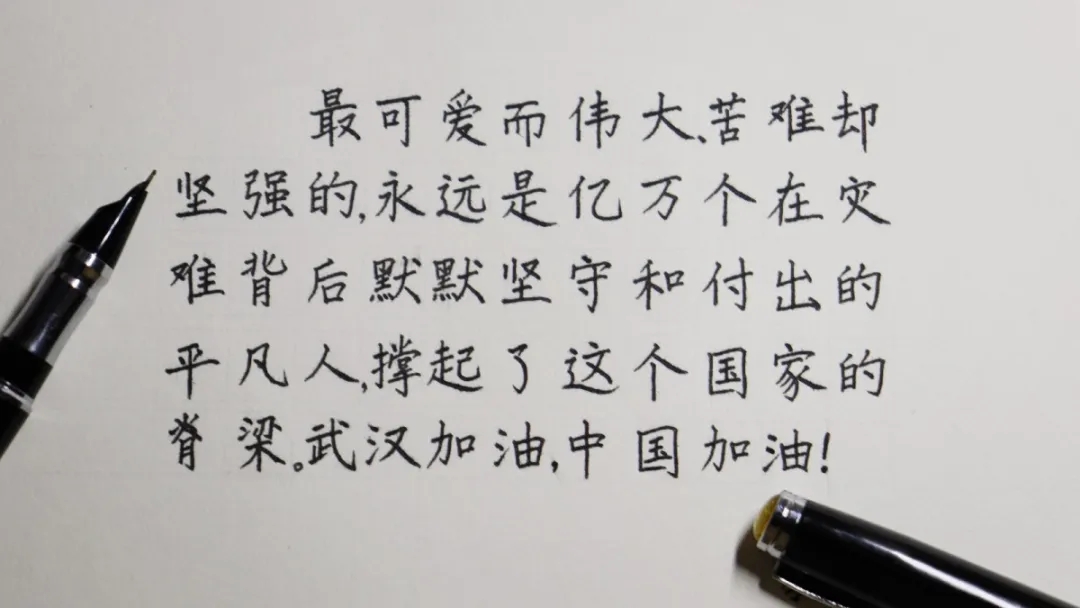 最可爱而伟大、苦难却
坚强的,永远是亿万个在灾
难背后默默坚守和付出的
平凡人,撑起了这个国家的
脊梁。武汉加油,中国加油!